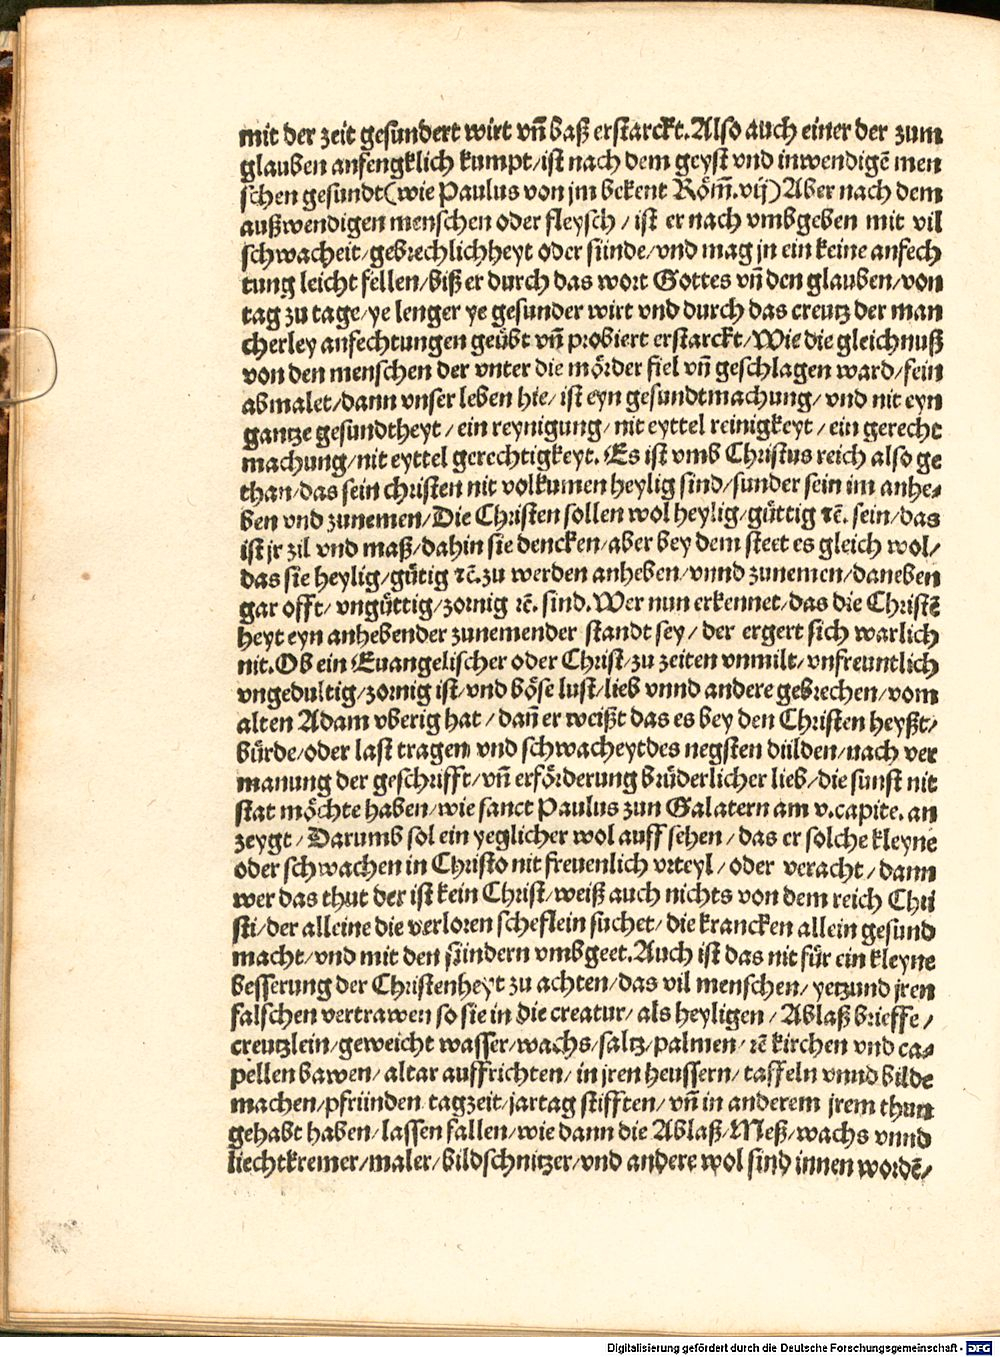 mit der zeit gesundert wirt vñ baß erstarckt. Also auch einer der zum
glauben anfengklich kumpt/ ist nach dem geyst vnd inwendigẽ men
schen gesundt (wie Paulus von jm bekent Röm̃. vij) Aber nach dem
außwendigen menschen oder fleysch / ist er nach vmbgeben mit vil
schwacheit/ gebrechlichheyt oder sünde/ vnd mag jn ein keine anfech
tung leicht fellen/ biß er durch das wort Gottes vñ den glauben/ von
tag zu tage/ ye lenger ye gesunder wirt vnd durch das creutz der man
cherley anfechtungen geübt vñ probiert erstarckt/ Wie die gleichnuß
von den menschen der vnter die mörder fiel vñ geschlagen ward/ fein
abmalet/ dann vnser leben hie/ ist eyn gesundtmachung/ vnd nit eyn
gantze gesundtheyt / ein reynigung/ nit eyttel reinigkeyt / ein gerecht
machung/ nit eyttel gerechtigkeyt. Es ist vmb Christus reich also ge
than/ das sein christen nit volkumen heylig sind/ sunder sein im anhe⸗
ben vnd zunemen/ Die Christen sollen wol heylig/ güttig ꝛc̃. sein/ das
ist jr zil vnd maß/ dahin sie dencken/ aber bey dem steet es gleich wol/
das sie heylig/ gütig ꝛc̃. zu werden anheben/ vnnd zunemen/ daneben
gar offt/ vngüttig/ zornig ꝛc̃. sind. Wer nun erkennet/ das die Christẽ
heyt eyn anhebender zunemender standt sey / der ergert sich warlich
nit. Ob ein Euangelischer oder Christ/ zu zeiten vnmilt/ vnfreuntlich
vngedultig/ zornig ist/ vnd böse lust/ lieb vnnd andere gebrechen/ vom
alten Adam vberig hat / dañ er weißt das es bey den Christen heyßt/
bürde/ oder last tragen vnd schwacheyt des negsten dulden/ nach ver
manung der geschrifft/ vñ erförderung brüderlicher lieb/ die sunst nit
stat möchte haben/ wie sanct Paulus zun Galatern am v. capite. an
zeygt / Darumb sol ein yeglicher wol auff sehen / das er solche kleyne
oder schwachen in Christo nit freuenlich vrteyl / oder veracht / dann
wer das thut der ist kein Christ/ weiß auch nichts von dem reich Chri
sti/ der alleine die verloren scheflein suchet/ die krancken allein gesund
macht/ vnd mit den sündern vmbgeet. Auch ist das nit für ein kleyne
besserung der Christenheyt zu achten/ das vil menschen/ yetzund jren
falschen vertrawen so sie in die creatur/ als heyligen / Ablaß brieffe /
creutzlein/ geweicht wasser/ wachs/ saltz/ palmen/ ꝛc̃ kirchen vnd ca⸗
pellen bawen/ altar auffrichten/ in jren heussern/ taffeln vnnd bilde
machen/ pfründen tagzeit/ jartag stifften/ vñ in anderem jrem thun
gehabt haben/ lassen fallen/ wie dann die Ablaß/ Meß/ wachs vnnd
liechtkremer/ maler/ bildschnitzer/ vnd andere wol sind innen wordẽ/
Digitalisierung gefördert durch die Deutsche Forschungsgemeinschaft - DFG